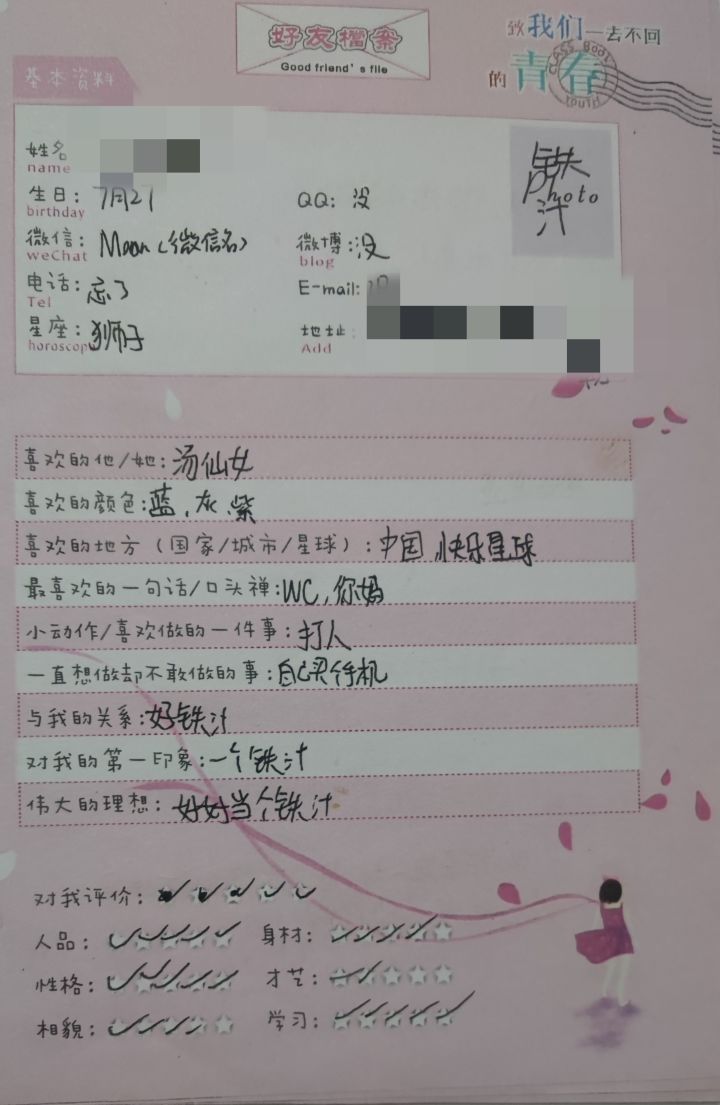 好友檔案
Good friend's file
致我们一去不回
的青春
CLASS BODY
YOUTH
基本资料
姓名
name
铁
Photo
汁
生日: 7月27
birthday
QQ: 没
微信: Moon (微信名)
weChat
微博: 没
blog
电话: 忘了
Tel
E-mail:
星座: 狮子
horoscop
地址:
Add
喜欢的他/她: 汤仙女
喜欢的颜色: 蓝、灰、紫
喜欢的地方(国家/城市/星球): 中国,快乐星球
最喜欢的一句话/口头禅: WC, 你妈
小动作/喜欢做的一件事: 打人
一直想做却不敢做的事: 自己买手机
与我的关系: 好铁汁
对我的第一印象: 一个铁汁
伟大的理想: 好好当个铁汁
对我评价:
人品: 身材:
性格: 才艺:
相貌: 学习: